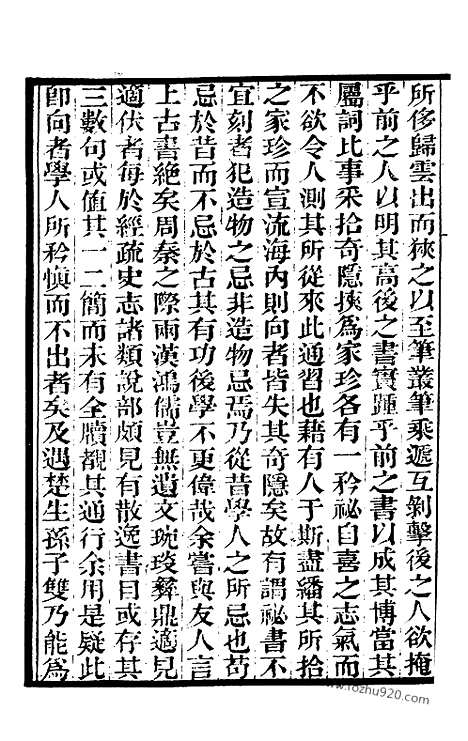 所侈歸雲出而狹之以至筆叢筆乘遞互剝擊後之人欲掩
乎前之人以明其高後之書實踵乎前之書以成其博當其
屬詞比事采拾奇隱挾爲家珍各有一矜祕自喜之志氣而
不欲令人測其所從來此通習也藉有人于斯盡繙其所拾
之家珍而宣流海內則向者皆失其奇隱矣故有謂祕書不
宜刻者犯造物之忌非造物忌焉乃從昔學人之所忌也苟
忌於昔而不忌於古其有功後學不更偉哉余嘗與友人言
上古書絕矣周秦之際兩漢鴻儒豈無遺文琬琰彝鼎適見
適伏者每於經疏史志諸類說部頗見有散逸書曰或存其
三數句或値其一二簡而未有全牘覩其通行余用是疑此
卽向者學人所矜慎而不出者矣及遇楚生孫子雙乃能爲
www.fozhu920.com